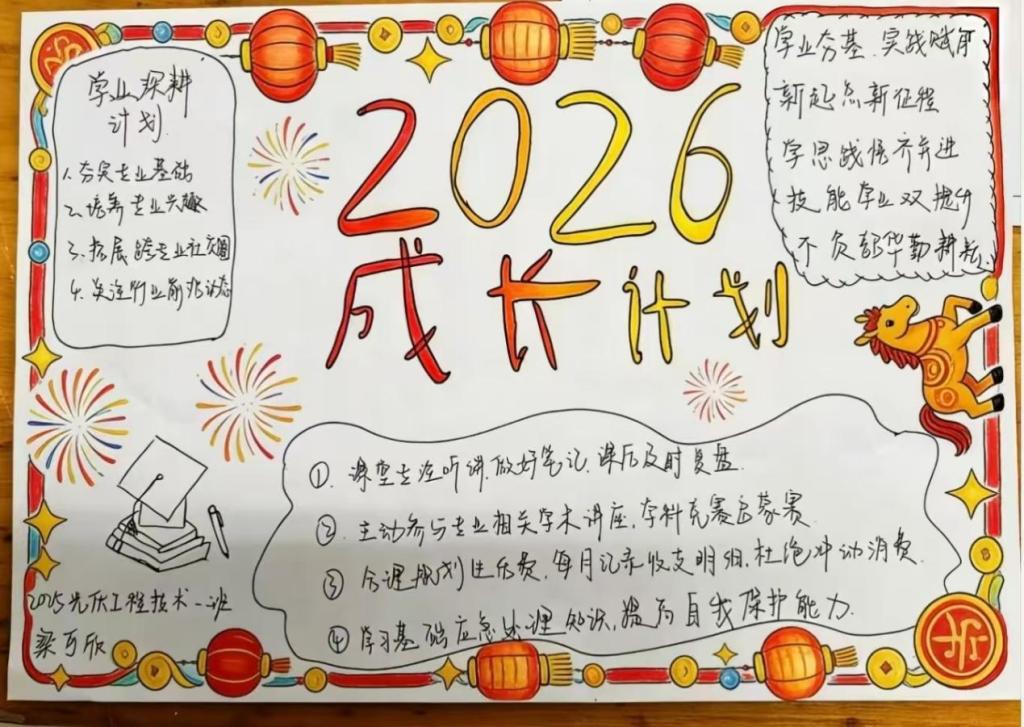 2026
成长计划
学业深耕
计划
1.夯实专业基础
2.培养专业兴趣
3.拓展跨专业社交圈
4.关注行业前沿动态
学业夯基.实战赋能
新起点新征程
学思践悟齐并进
技能学业双提升
不负韶华勤耕耘
① 课堂专注听讲.做好笔记.课后及时复盘.
② 主动参与专业相关学术讲座,学科竞赛启蒙赛
③ 合理规划生活费,每月记录收支明细,杜绝冲动消费.
④ 学习基础应急处理知识,提高自我保护能力.
2025光伏工程技术一班
梁可欣